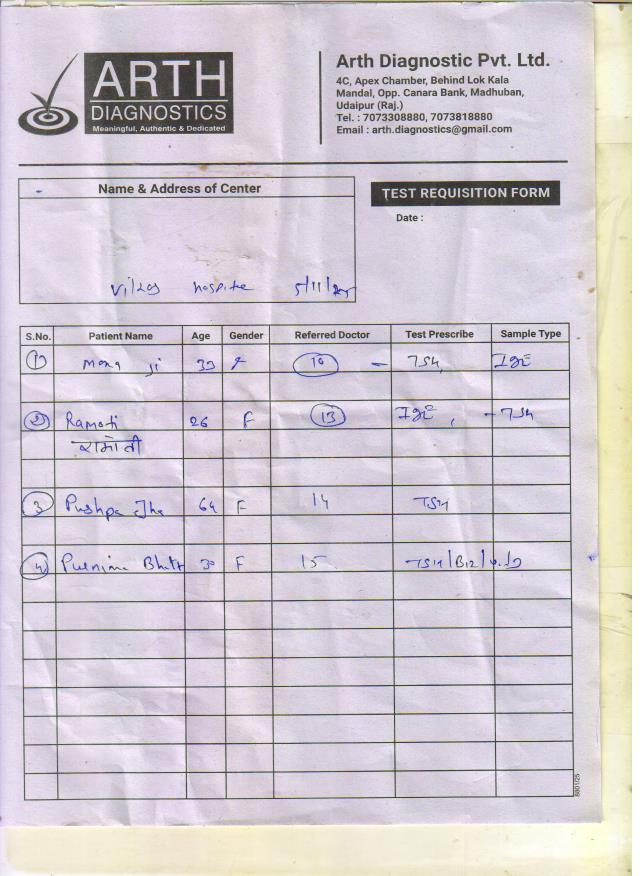 ARTH
DIAGNOSTICS
Meaningful, Authentic & Dedicated
Arth Diagnostic Pvt. Ltd.
4C, Apex Chamber, Behind Lok Kala
Mandal, Opp. Canara Bank, Madhuban,
Udaipur (Raj.)
Tel. : 7073308880, 7073818880
Email : arth.diagnostics@gmail.com
Name & Address of Center
TEST REQUISITION FORM
Date :
5/11/25
S.No. Patient Name Age Gender Referred Doctor Test Prescribe Sample Type
1 Mona ji 33 F 10 - TSH, IgE
2 Ramoti 26 F 13 IgE, - TSH
रामोती
3 Pushpa Jha 64 F 14 TSH
4 Purnima Bhatt 30 F 15 TSH/B12/
8801/25